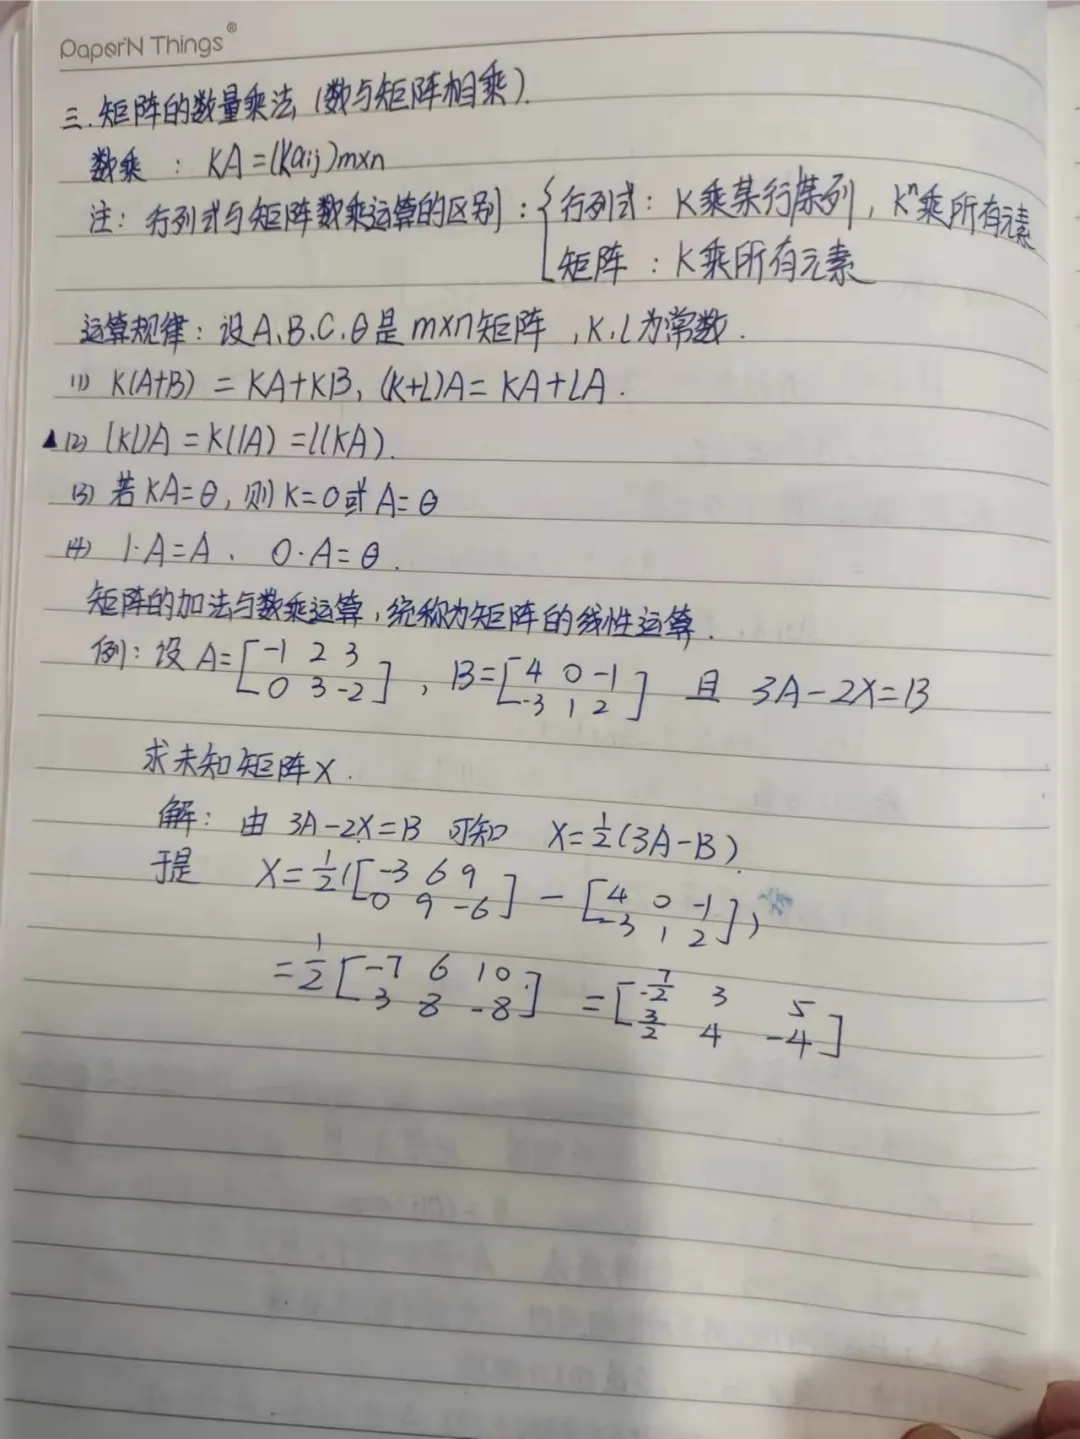 PaperN Things®
三.矩阵的数量乘法(数与矩阵相乘).
数乘:KA=(Kaij)m×n
注:行列式与矩阵数乘运算的区别:{行列式:K乘某行某列,Kⁿ乘所有元素
矩阵:K乘所有元素
运算规律:设A、B、C、θ是m×n矩阵,K,l为常数.
(1) K(A+B)=KA+KB,(K+L)A=KA+LA.
▲(2) (Kl)A=K(lA)=l(KA).
(3) 若KA=θ,则K=0或A=θ
(4) 1·A=A、0·A=θ.
矩阵的加法与数乘运算,统称为矩阵的线性运算.
例:设A=[-1 2 3; 0 3 -2],B=[4 0 -1; -3 1 2] 且 3A-2X=B
求未知矩阵X.
解:由 3A-2X=B 可知 X=1/2(3A-B).
于是 X=1/2([-3 6 9; 0 9 -6]-[4 0 -1; -3 1 2])
=1/2[-7 6 10; 3 8 -8]=[-7/2 3 5; 3/2 4 -4]